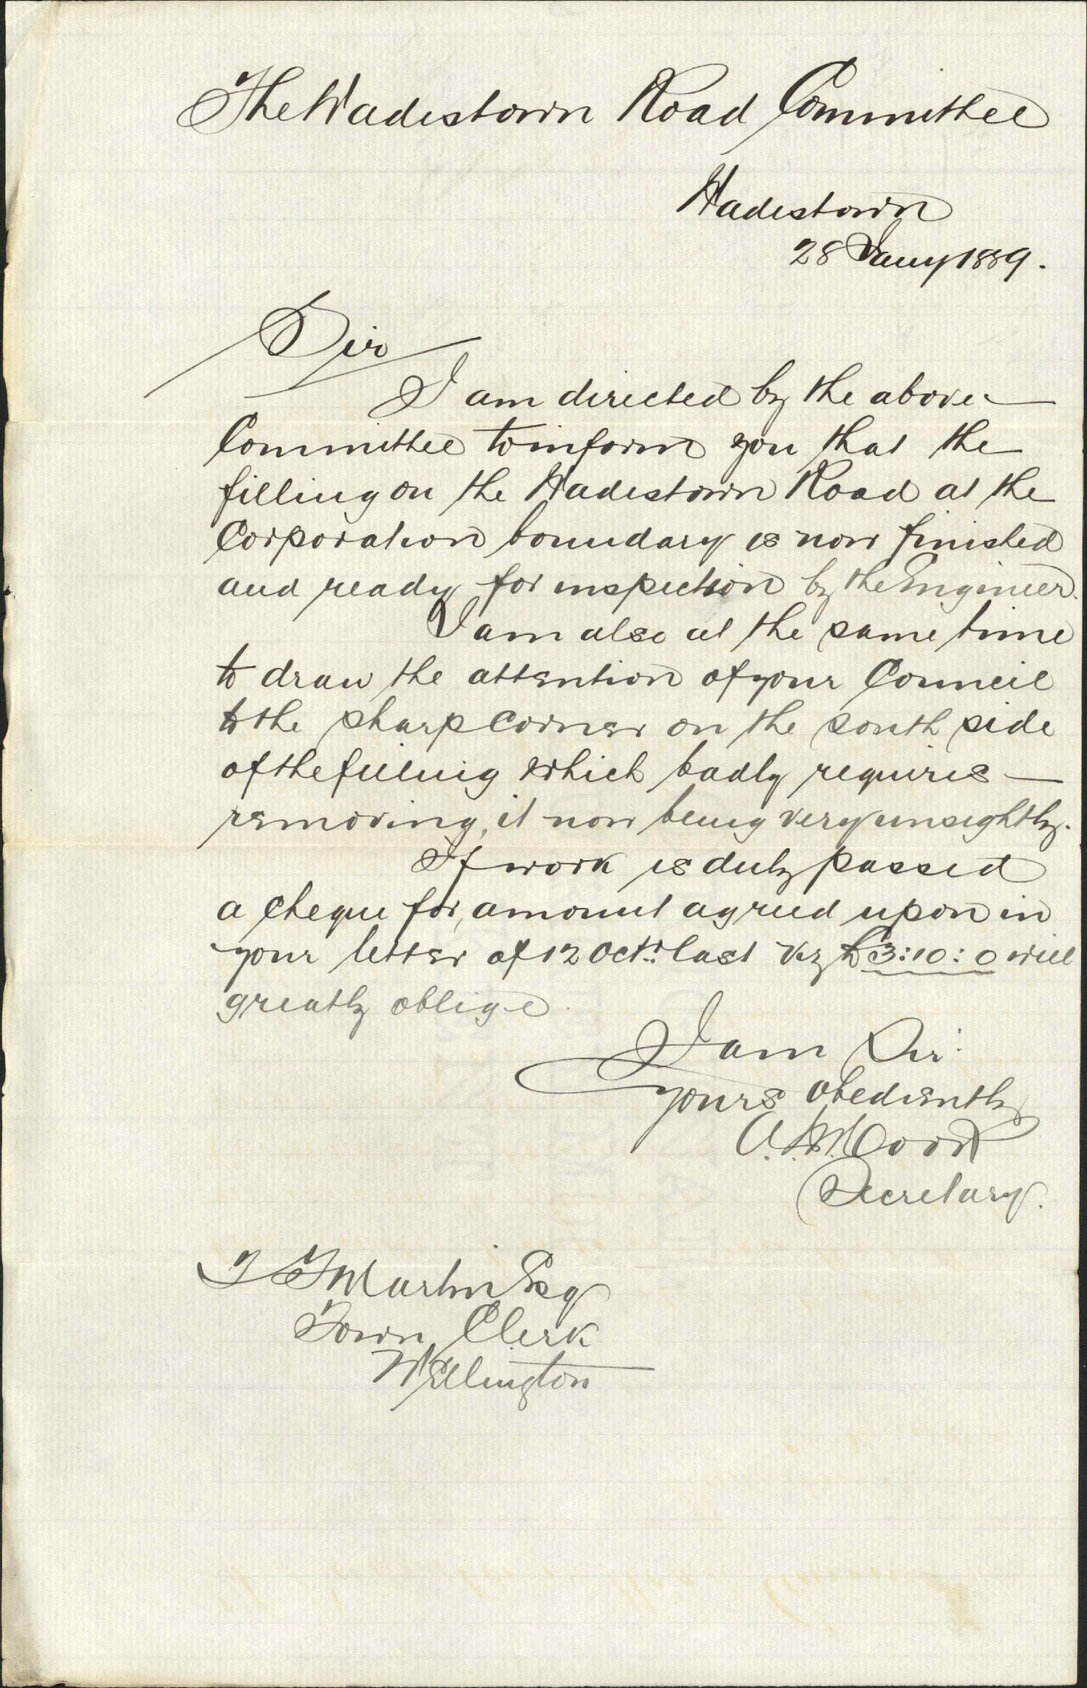 The Wadestown Road Committee
Wadestown
28 Jany 1889.
Sir
I am directed by the above
Committee to inform you that the
filling on the Wadestown Road at the
Corporation boundary is now finished
and ready for inspection by the Engineer.
I am also at the same time
to draw the attention of your Council
to the sharp corner on the south side
of the filling which badly requires
removing, it now being very unsightly.
If work is duly passed
a cheque for amount agreed upon in
your letter of 12 Octr. last viz £3:10:0 will
greatly oblige
I am Sir
yours obediently
Secretary.
Martin Esq
Town Clerk
Wellington